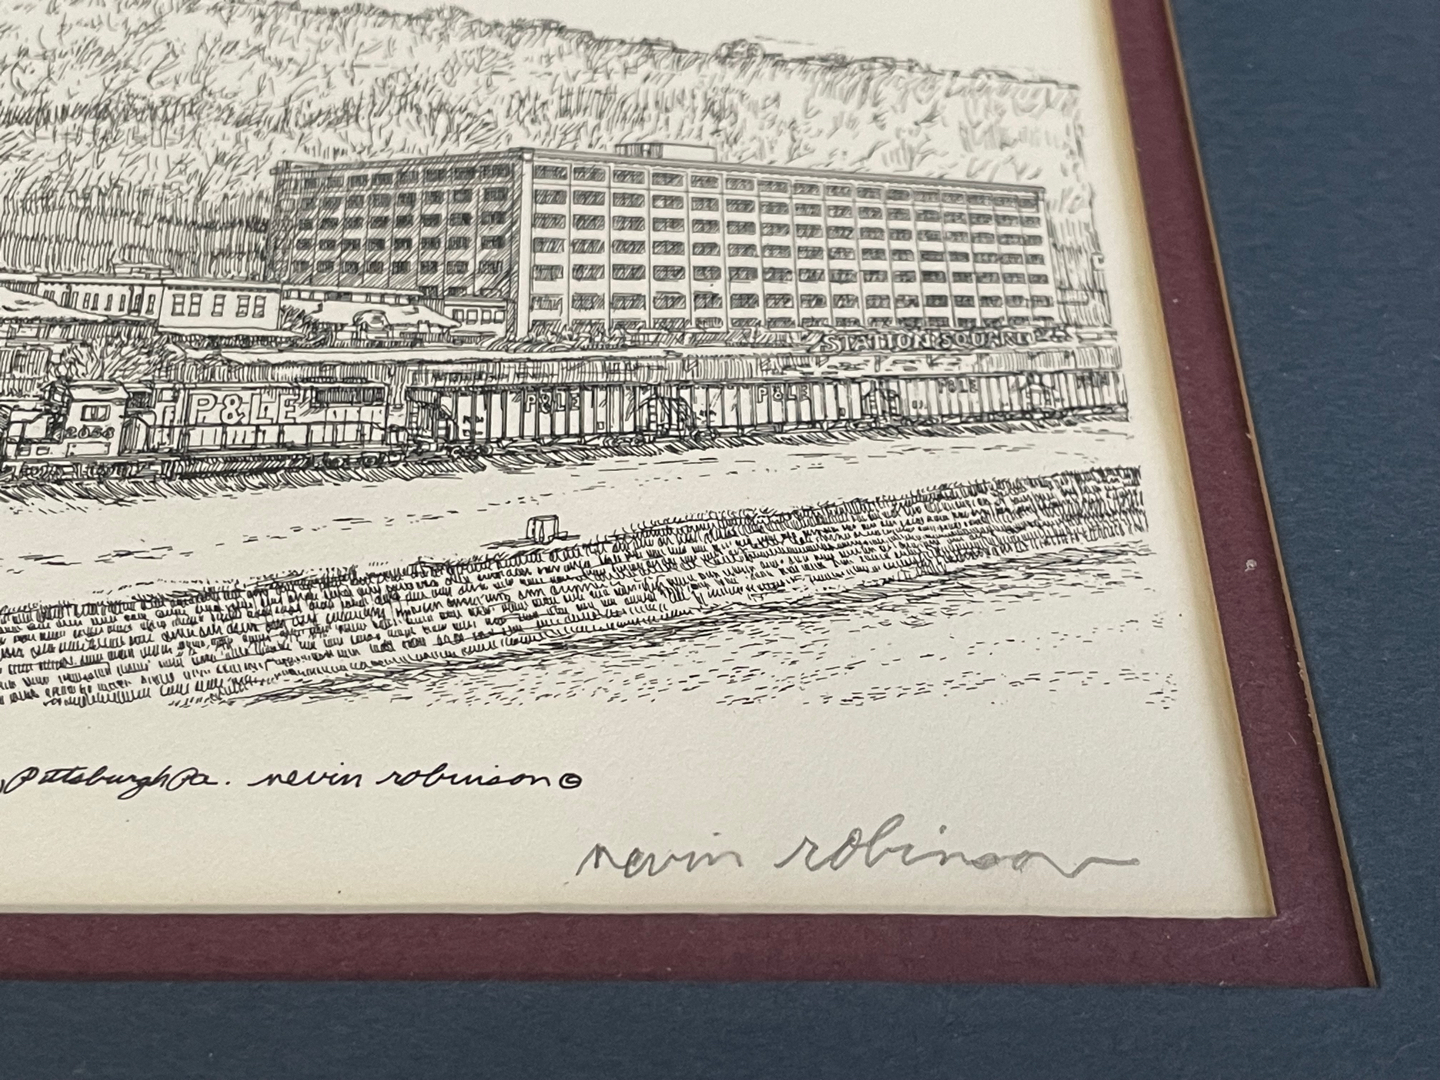 STATION SQUARE
P&LE
P&LE
P&LE
P&LE
, pittsburgh Pa. nevin robinson ©
nevin robinson